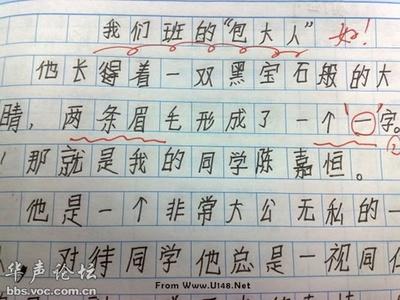 我们班的“包大人” 好！
他长得着一双黑宝石般的大
睛，两条眉毛形成了一个“一”字。
！那就是我的同学陈嘉恒。 ②
他是一个非常大公无私的一
对待同学他总是一视同仁
华声论坛
bbs.voc.com.cn
From Www.U148.Net